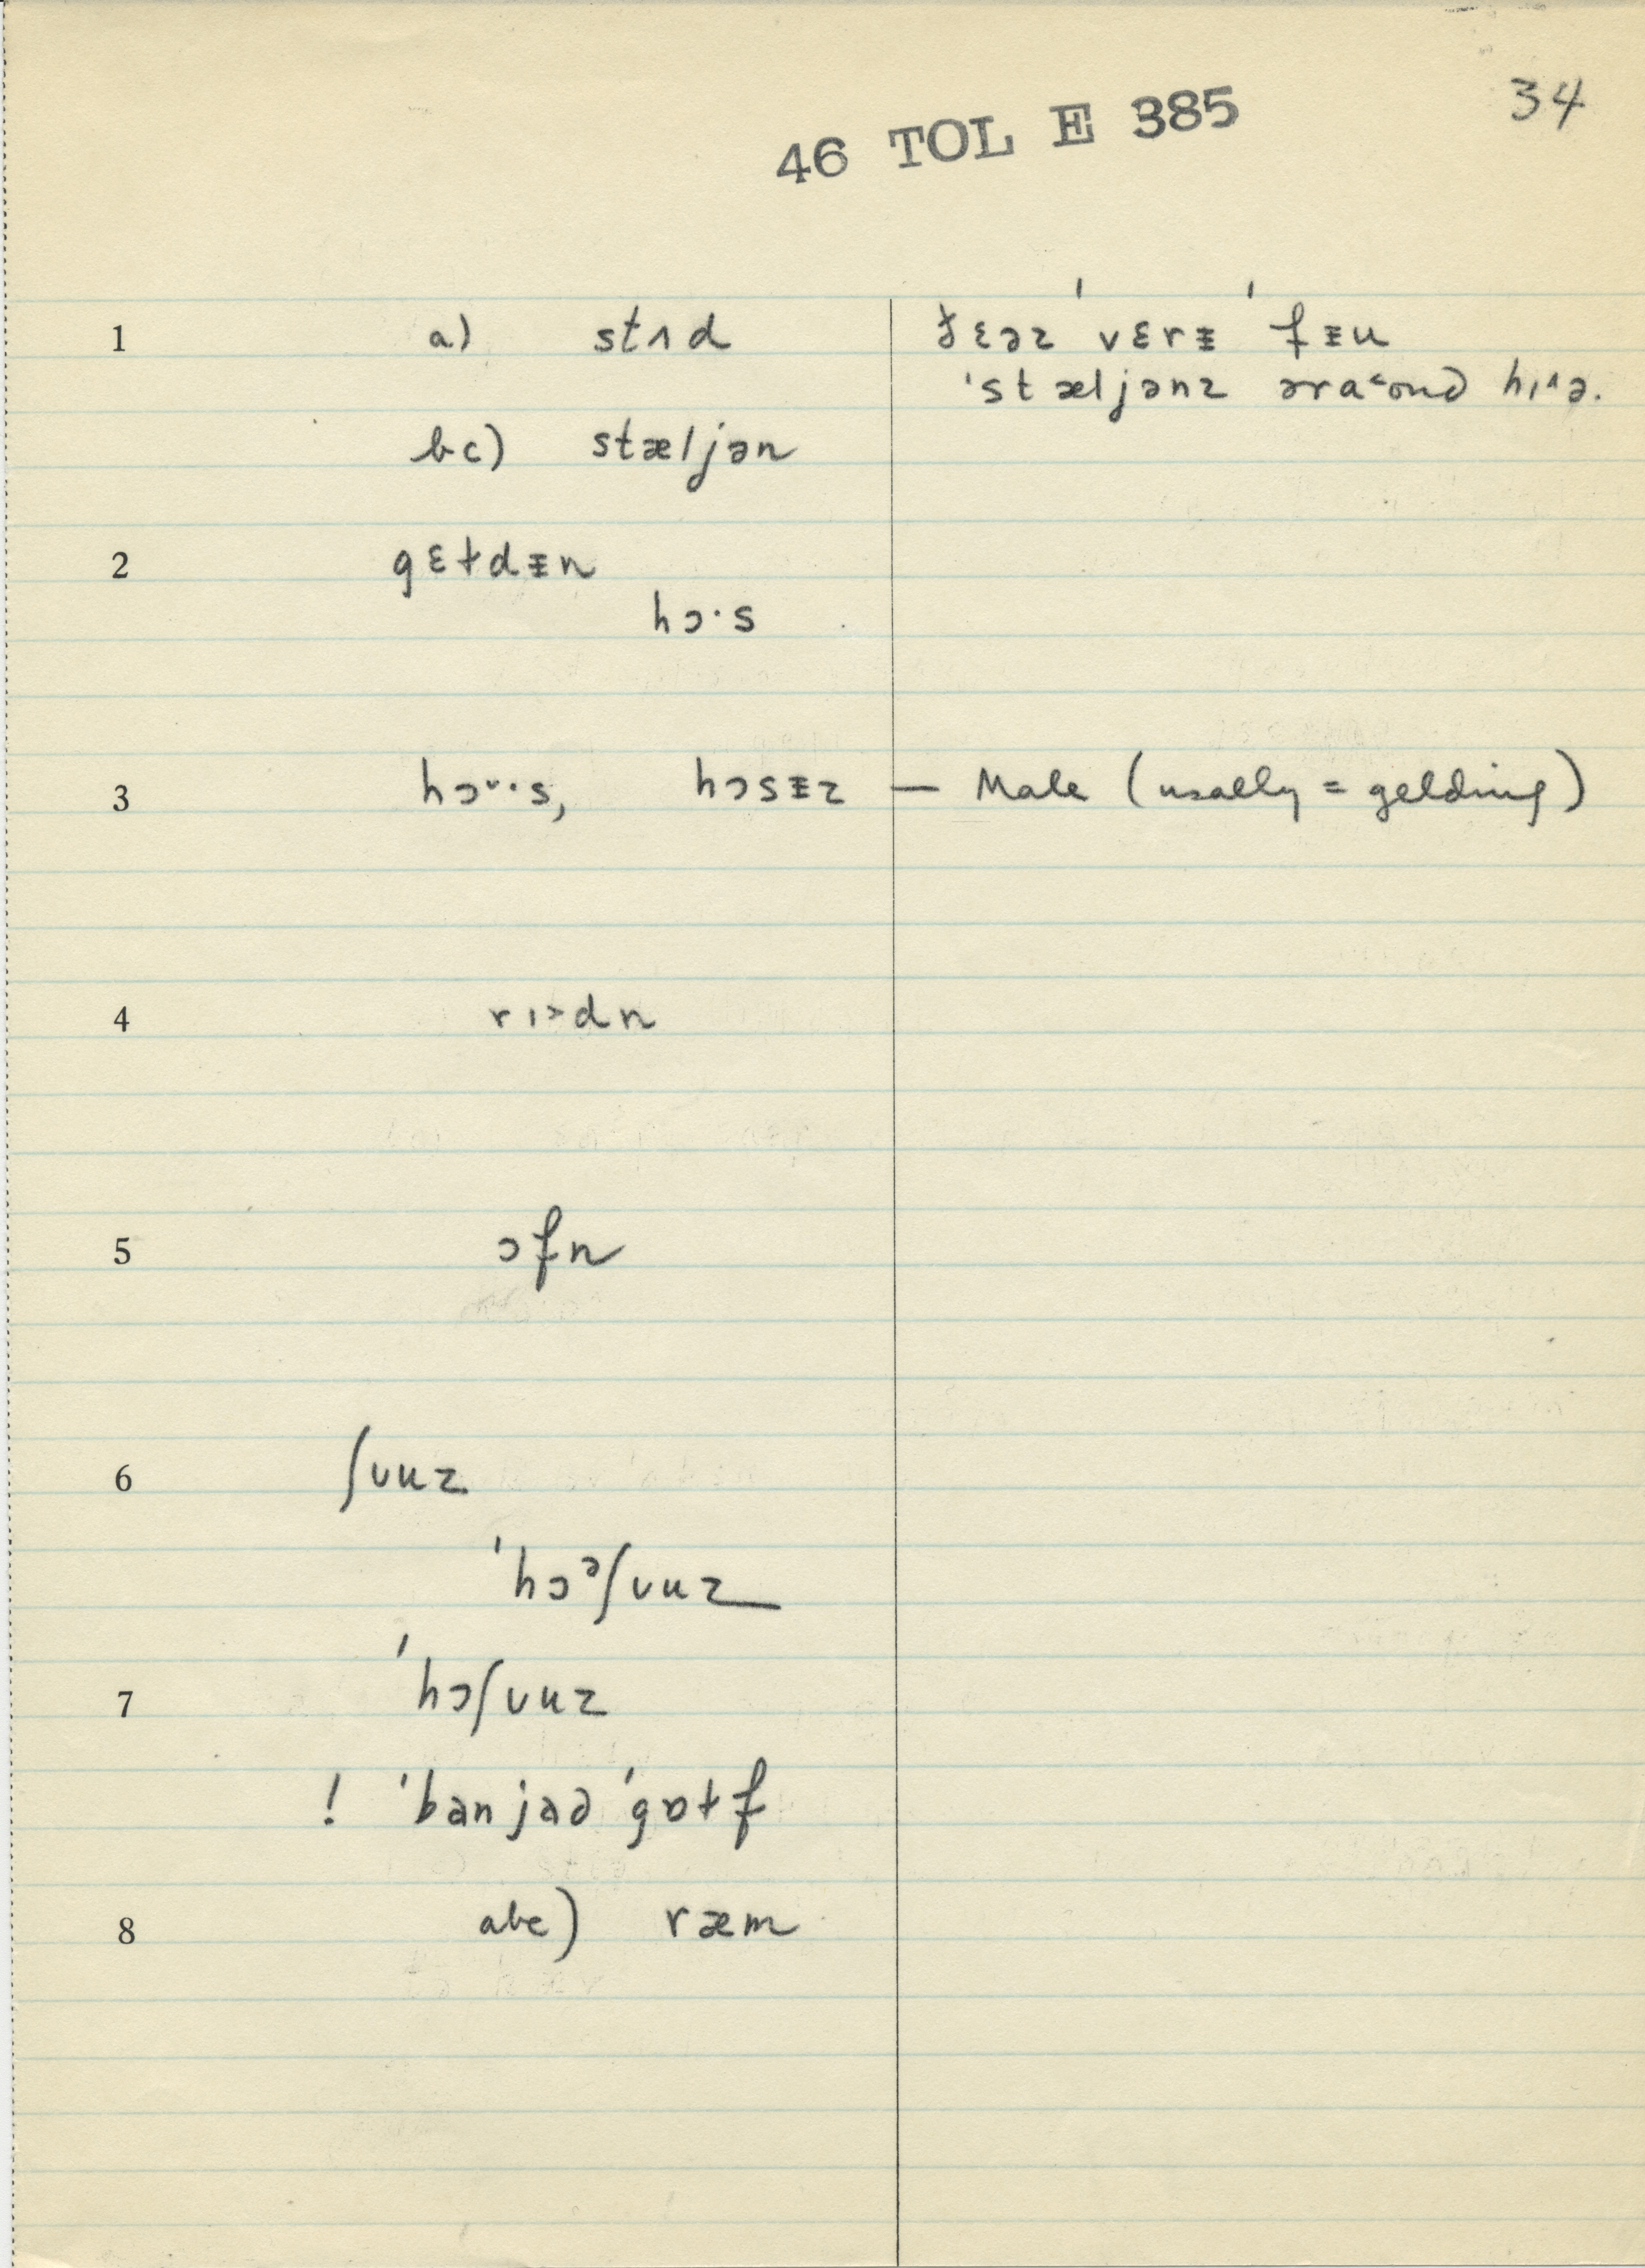 46 TOL E 385 34
1 a) stʌd ðɛəz ˈvɛrɨ ˈfɨu
ˈstæljənz əra˂ond hɪ˄ə.
bc) stæljən
2 gɛtdɨn
hɔ·s
3 hɔ˅·s, hɔsɨz — Male (usally = gelding)
4 rɪ˃dn
5 ɔfn
6 ʃuuz
ˈhɔᵊʃuuz
7 ˈhɔʃuuz
8 abc) ræm